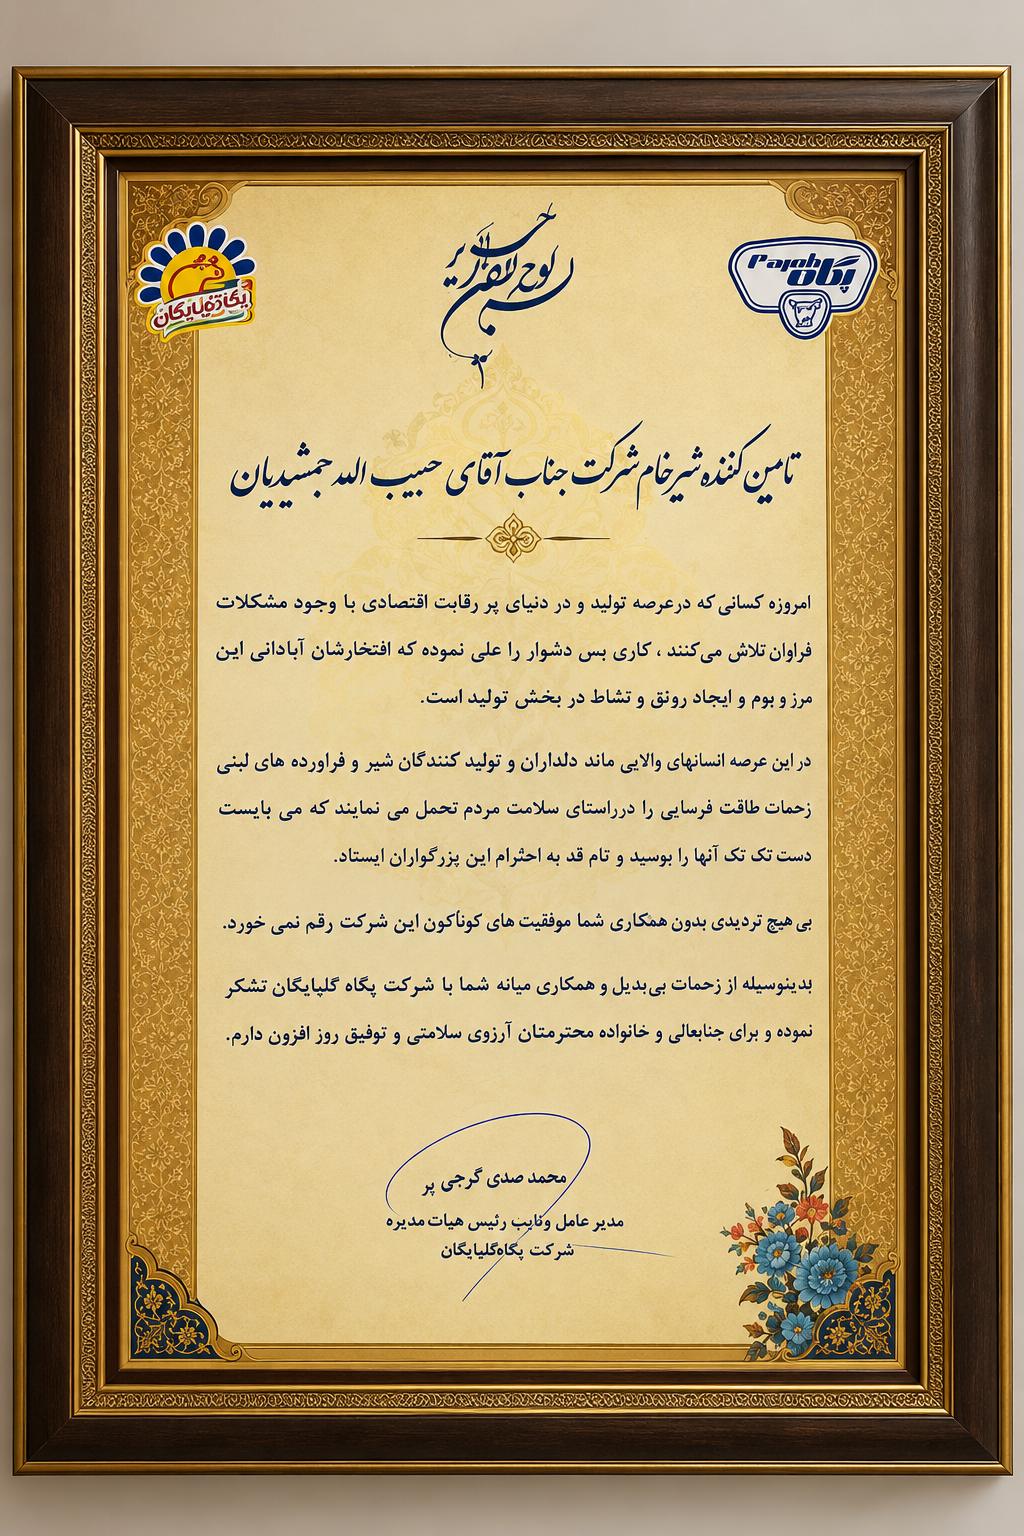 Pegah
پگاه
تامین کننده شیر خام شرکت جناب آقای حبیب الله جمشیدیان
امروزه کسانی که درعرصه تولید و در دنیای پر رقابت اقتصادی با وجود مشکلات
فراوان تلاش می‌کنند ، کاری بس دشوار را علی نموده که افتخارشان آبادانی این
مرز و بوم و ایجاد رونق و تشاط در بخش تولید است.
در این عرصه انسانهای والایی ماند دلداران و تولید کنندگان شیر و فراورده های لبنی
زحمات طاقت فرسایی را درراستای سلامت مردم تحمل می نمایند که می بایست
دست تک تک آنها را بوسید و تام قد به احترام این پزرگواران ایستاد.
بی هیچ تردیدی بدون همکاری شما موفقیت های کوناکون این شرکت رقم نمی خورد.
بدینوسیله از زحمات بی‌بدیل و همکاری میانه شما با شرکت پگاه گلپایگان تشکر
نموده و برای جنابعالی و خانواده محترمتان آرزوی سلامتی و توفیق روز افزون دارم.
محمد صدی گرجی پر
مدیر عامل ونایب رئیس هیات مدیره
شرکت پگاه‌گلپایگان